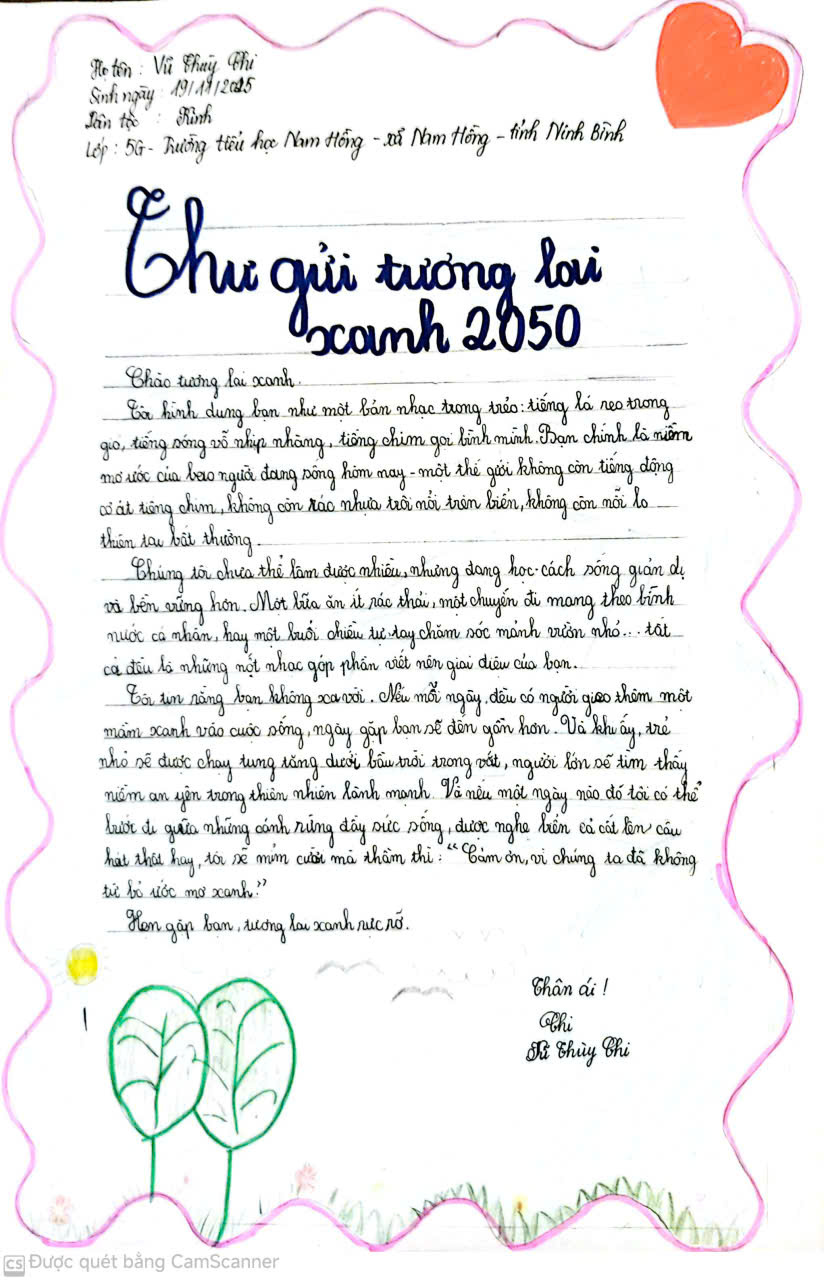 Họ tên : Vũ Thùy Chi
Sinh ngày : 19/11/2015
Dân tộc : Kinh
Lớp : 5G - Trường tiểu học Nam Hồng - xã Nam Hồng - tỉnh Ninh Bình
Thư gửi tương lai
xanh 2050
Chào tương lai xanh.
Tôi hình dung bạn như một bản nhạc trong trẻo: tiếng lá reo trong
gió, tiếng sóng vỗ nhịp nhàng, tiếng chim gọi bình minh. Bạn chính là niềm
mơ ước của bao người đang sống hôm nay - một thế giới không còn tiếng động
cơ át tiếng chim, không còn rác nhựa trôi nổi trên biển, không còn nỗi lo
thiên tai bất thường.
Chúng tôi chưa thể làm được nhiều, nhưng đang học cách sống giản dị
và bền vững hơn. Một bữa ăn ít rác thải, một chuyến đi mang theo bình
nước cá nhân, hay một buổi chiều tự tay chăm sóc mảnh vườn nhỏ... tất
cả đều là những nốt nhạc góp phần viết nên giai điệu của bạn.
Tôi tin rằng bạn không xa vời. Nếu mỗi ngày, đều có người gieo thêm một
mầm xanh vào cuộc sống, ngày gặp bạn sẽ đến gần hơn. Và khi ấy, trẻ
nhỏ sẽ được chạy tung tăng dưới bầu trời trong vắt, người lớn sẽ tìm thấy
niềm an yên trong thiên nhiên lành mạnh. Và nếu một ngày nào đó tôi có thể
bước đi giữa những cánh rừng đầy sức sống, được nghe biển cả cất lên câu
hát thật hay, tôi sẽ mỉm cười mà thầm thì : "Cảm ơn, vì chúng ta đã không
từ bỏ ước mơ xanh!"
Hẹn gặp bạn, tương lai xanh rực rỡ.
Thân ái !
Chi
Vũ Thùy Chi
CS Được quét bằng CamScanner